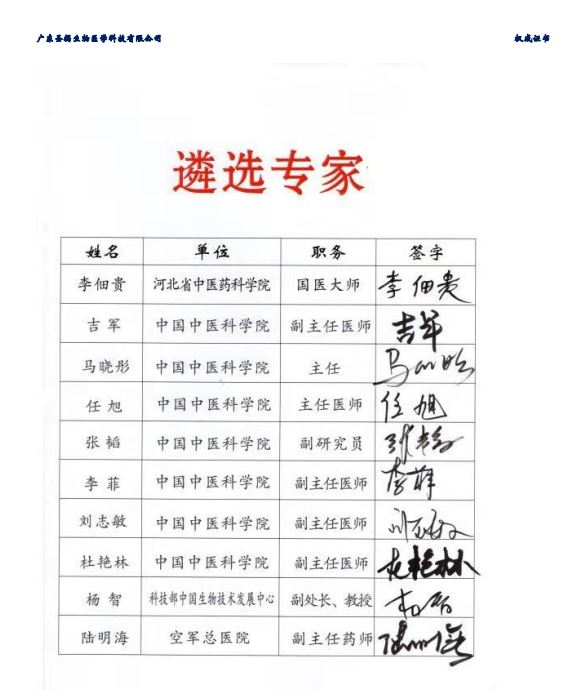 广东圣梅生物医学科技有限公司 权威证书
遴选专家
姓名 单位 职务 签字
李佃贵 河北省中医药科学院 国医大师 李佃贵
吉军 中国中医科学院 副主任医师 吉军
马晓彤 中国中医科学院 主任
任旭 中国中医科学院 主任医师 任旭
张韬 中国中医科学院 副研究员 张韬
李菲 中国中医科学院 副主任医师 李菲
刘志敏 中国中医科学院 副主任医师 刘志敏
杜艳林 中国中医科学院 副主任医师 杜艳林
杨智 科技部中国生物技术发展中心 副处长、教授 杨智
陆明海 空军总医院 副主任药师 陆明海